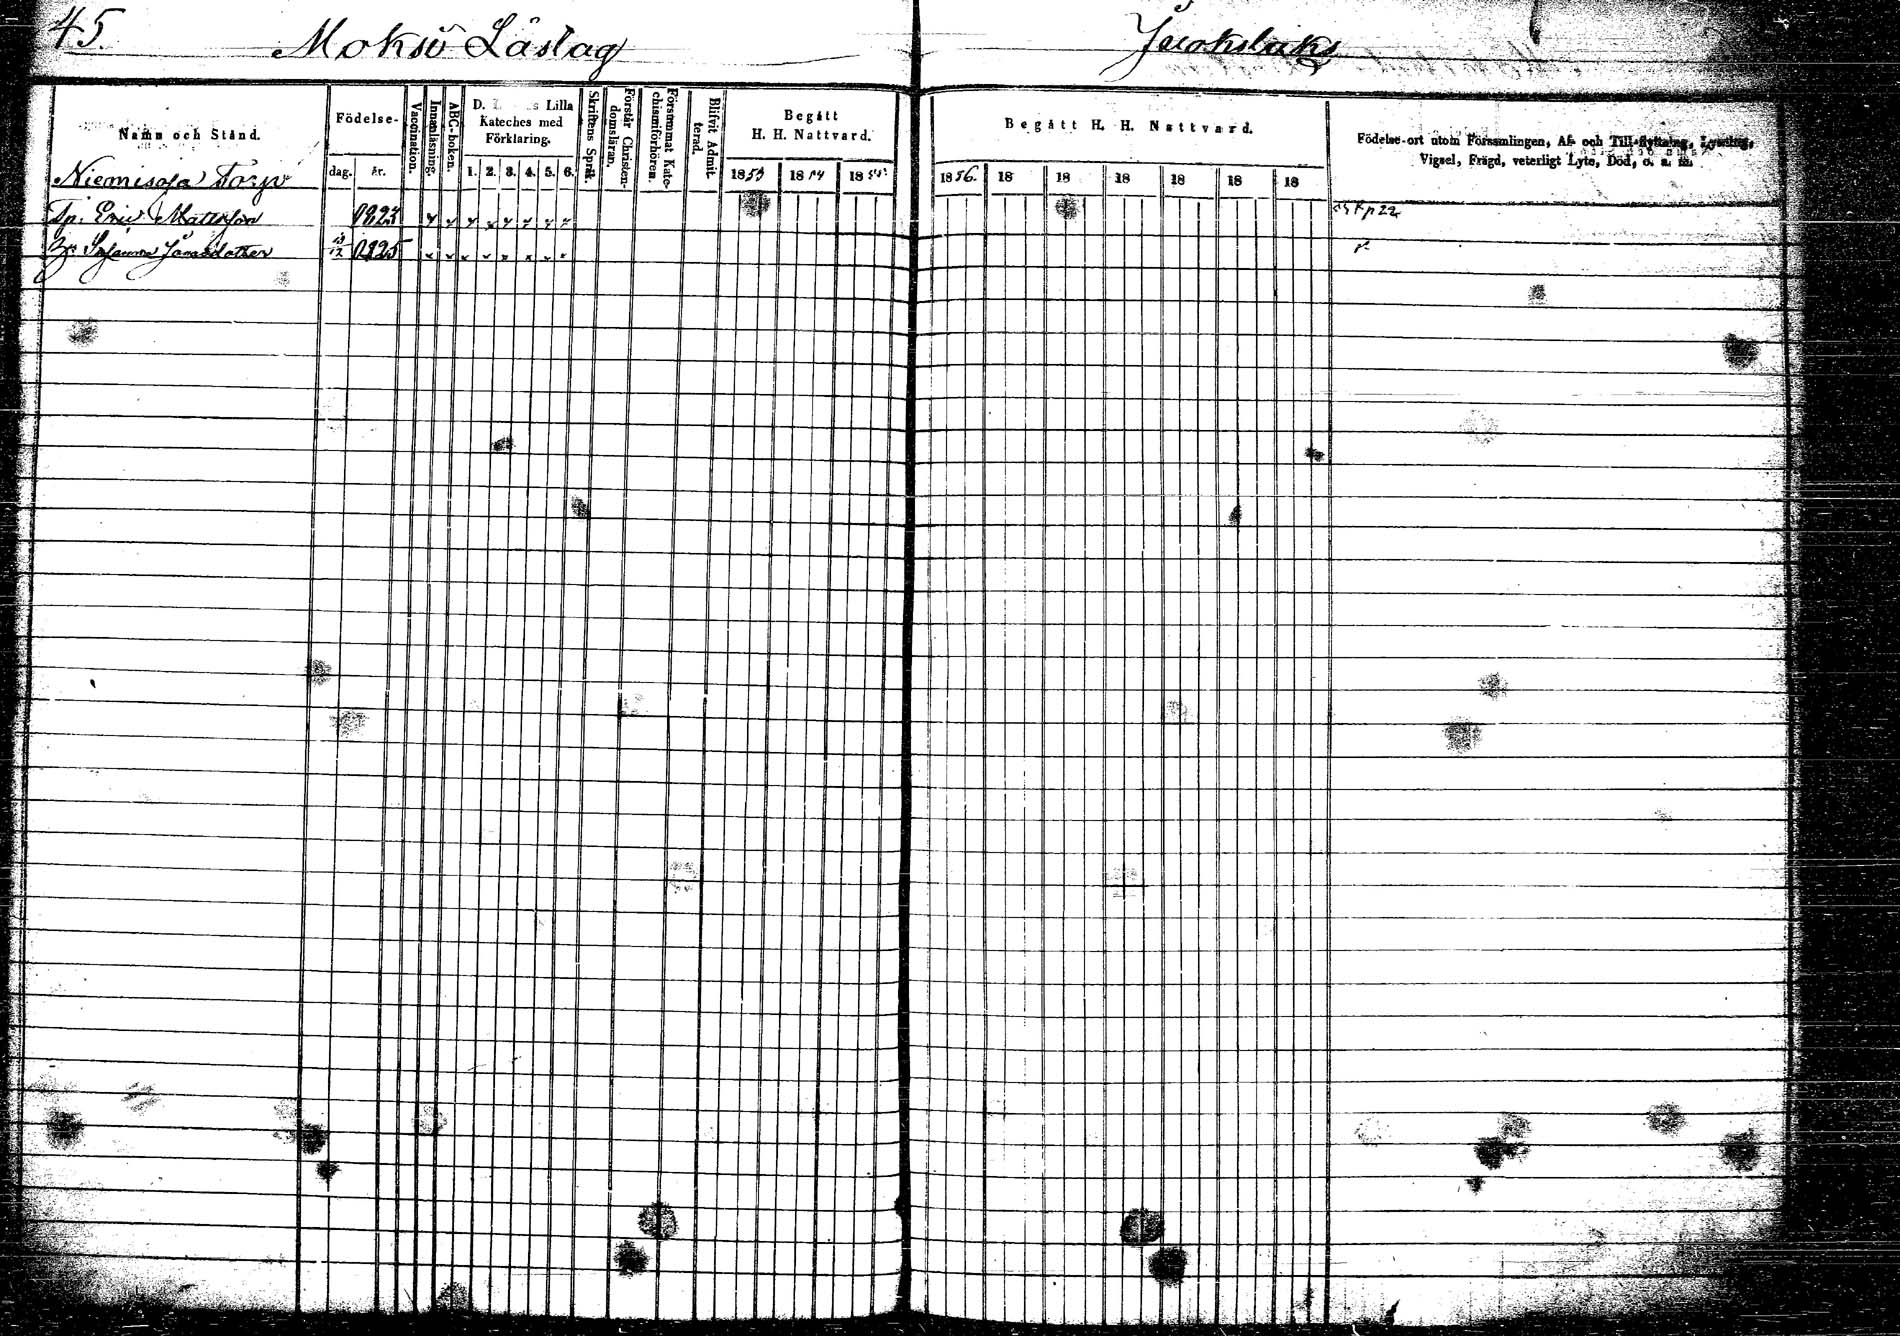 45.
Moksö Läslag
Juoksluks
Namn och Stånd.
Födelse-
dag.
år.
Vaccination.
Innanläsning.
ABC-boken.
D. Lilla
Kateches med
Förklaring.
1. 2. 3. 4. 5. 6.
Skriftens Språk.
Förstår Christen-
domsläran.
Försummat Kate-
chismiförhören.
Blifvit Admit-
terad.
Begått
H. H. Nattvard.
1853 1854 1855
Begått H. H. Nattvard.
1856. 18 18 18 18 18 18
Födelse-ort utom Församlingen, Af- och Till-flyttning, Lysning,
Vigsel, Frägd, veterligt Lyte, Död, o. s. m.
Niemisoja Torp
Tp. Eric Mattsson 1823 p 22
Susanna Jönasdotter 13/12 1825